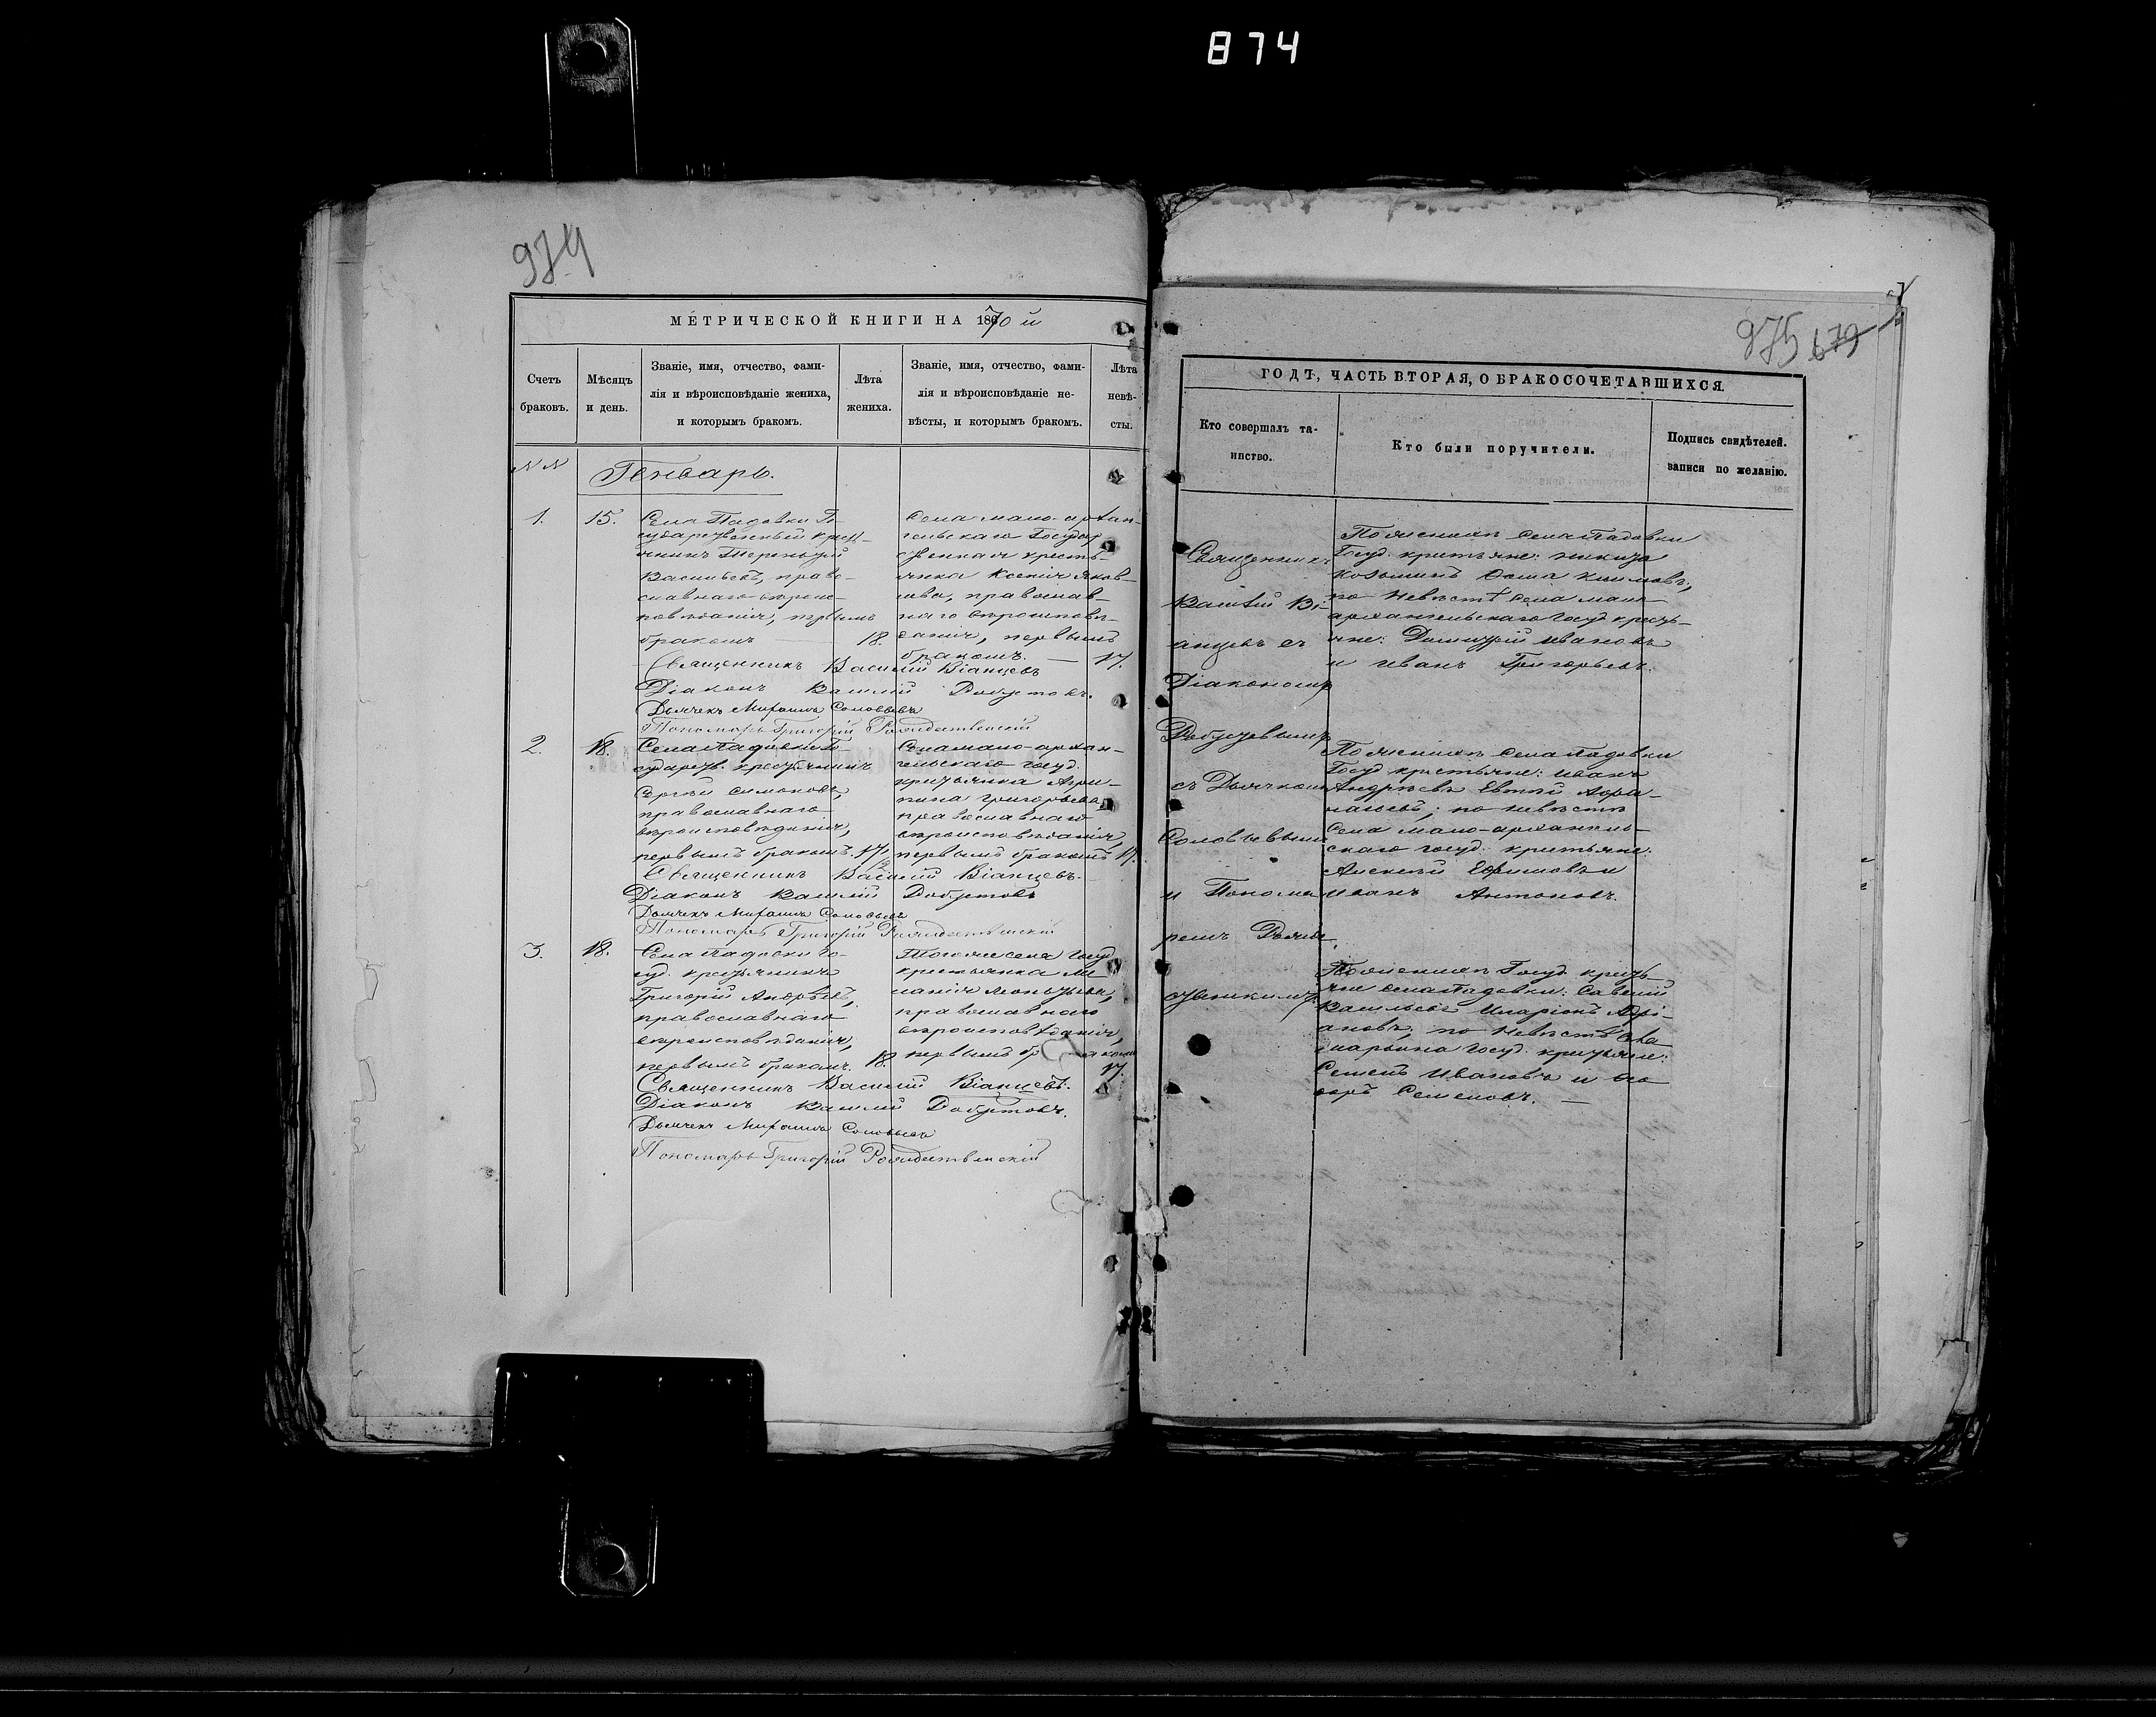 874
974
МЕТРИЧЕСКОЙ КНИГИ НА 1870 й
Счетъ браковъ.
Мѣсяцъ и день.
Званіе, имя, отчество, фами-
лія и вѣроисповѣданіе жениха,
и которымъ бракомъ.
Лѣта жениха.
Званіе, имя, отчество, фами-
лія и вѣроисповѣданіе не-
вѣсты, и которымъ бракомъ.
Лѣта невѣ-
сты.
№№
Генварь.
1. 15.
Села Падовки Го-
сударственный крест-
янинъ Терентій
Васильевъ, право-
славнаго вѣроис-
повѣданія, первымъ
бракомъ 18.
Села мало-архан-
гельскаго Государ
ственная кресть-
янка Ксенія Яков-
лева, православ-
наго вѣроисповѣ-
данія, первымъ
бракомъ. — 17.
Священникъ Василій Віанцевъ
Діаконъ Василій Добустовъ.
Дьячекъ Михаилъ Соловьевъ
Пономарь Григорій Рождественскій
2. 18.
Села Падовки Го-
сударств. крестьянинъ
Сергѣй Симоновъ,
православнаго
вѣроисповѣданія,
первымъ бракомъ. 17½
Села мало-архан-
гельскаго Госуд.
крестьянка Агри-
пина Григорьева,
православнаго
вѣроисповѣданія,
первымъ бракомъ 17.
Священникъ Василій Віанцевъ.
Діаконъ Василій Добустовъ
Дьячекъ Михаилъ Соловьевъ
Пономарь Григорій Рождественскій
3. 18.
Села Падовки Го-
суд. крестьянинъ
Григорій Андрѣевъ,
православнаго
вѣроисповѣданія,
первымъ бракомъ. 18.
Тогоже села Госуд
крестьянка Ме
ланія Леонтьева,
православнаго
вѣроисповѣданія,
первымъ бракомъ
17.
Священникъ Василій Віанцевъ.
Діаконъ Василій Добустовъ.
Дьячекъ Михаилъ Соловьевъ
Пономарь Григорій Рождественскій
975 679
ГОДЪ, ЧАСТЬ ВТОРАЯ, О БРАКОСОЧЕТАВШИХСЯ.
Кто совершалъ та-
инство.
Кто были поручители.
Подпись свидѣтелей.
записи по желанію.
Священникъ
Василій Ві-
анцевъ съ
Діакономъ
Добустовымъ
съ Дьячкомъ
Соловьевымъ
и Понома
ремъ Рожде
ственскимъ.
По женихѣ Села Падовки
Госуд. крестьяне: Никита
Козьминъ Фома Климовъ,
по Невѣстѣ Села мало-
архангельскаго Госуд крест-
яне: Димитрій Ивановъ
и Иванъ Григорьевъ.
По женихѣ Села Падовки
Госуд крестьяне: Иванъ
Андрѣевъ Евтей Афа-
насьевъ; по невѣстѣ
Села мало-архангель-
скаго госуд. крестьяне:
Алексѣй Ефимовъ и
Иванъ Антоновъ.
По женихѣ Госуд. кресть-
яне села Падовки: Савелій
Васильевъ Иларіонъ Адрі-
ановъ, по Невѣстѣ
Госуд. крестьяне:
Семенъ Ивановъ и
Семеновъ. —